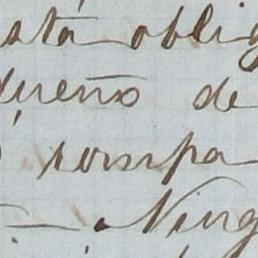 está oblig
dueño de
rompa
— Ning